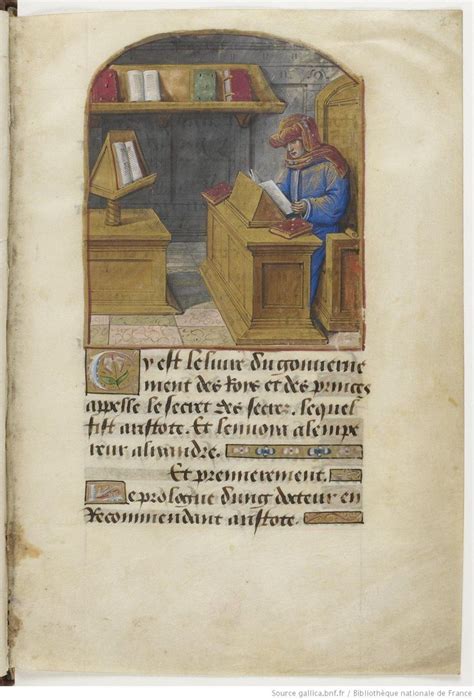 Cy est le liure du gouuerne
ment des Roys et des princes
appelle le secret des secrez. lequel
fist aristote. Et lenuoia a lempe
reur alixandre.
Et premierement.
Le prologue dung docteur en
Recommendant aristote.
Source gallica.bnf.fr / Bibliothèque nationale de France